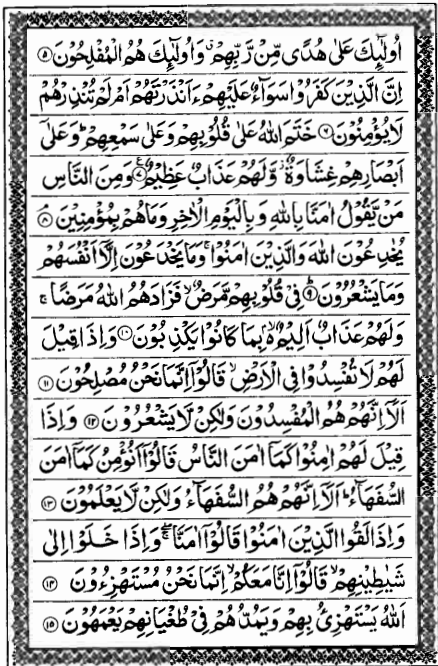 اُولٰٓئِكَ عَلٰى هُدًى مِّنْ رَّبِّهِمْ ۙ وَاُولٰٓئِكَ هُمُ الْمُفْلِحُوْنَ ۝۵
اِنَّ الَّذِيْنَ كَفَرُوْا سَوَآءٌ عَلَيْهِمْ ءَاَنْذَرْتَهُمْ اَمْ لَمْ تُنْذِرْهُمْ
لَا يُؤْمِنُوْنَ ۝۶ خَتَمَ اللّٰهُ عَلٰى قُلُوْبِهِمْ وَعَلٰى سَمْعِهِمْ ؕ وَعَلٰٓى
اَبْصَارِهِمْ غِشَاوَةٌ ؗ وَّلَهُمْ عَذَابٌ عَظِيْمٌ ۝۷ وَمِنَ النَّاسِ
مَنْ يَّقُوْلُ اٰمَنَّا بِاللّٰهِ وَبِالْيَوْمِ الْاٰخِرِ وَمَا هُمْ بِمُؤْمِنِيْنَ ۝۸
يُخٰدِعُوْنَ اللّٰهَ وَالَّذِيْنَ اٰمَنُوْا ۚ وَمَا يَخْدَعُوْنَ اِلَّآ اَنْفُسَهُمْ
وَمَا يَشْعُرُوْنَ ۝۹ فِيْ قُلُوْبِهِمْ مَّرَضٌ ۙ فَزَادَهُمُ اللّٰهُ مَرَضًا ۚ
وَلَهُمْ عَذَابٌ اَلِيْمٌ ۢ ۙ بِمَا كَانُوْا يَكْذِبُوْنَ ۝۱۰ وَاِذَا قِيْلَ
لَهُمْ لَا تُفْسِدُوْا فِي الْاَرْضِ ۙ قَالُوْٓا اِنَّمَا نَحْنُ مُصْلِحُوْنَ ۝۱۱
اَلَآ اِنَّهُمْ هُمُ الْمُفْسِدُوْنَ وَلٰكِنْ لَّا يَشْعُرُوْنَ ۝۱۲ وَاِذَا
قِيْلَ لَهُمْ اٰمِنُوْا كَمَآ اٰمَنَ النَّاسُ قَالُوْٓا اَنُؤْمِنُ كَمَآ اٰمَنَ
السُّفَهَآءُ ؕ اَلَآ اِنَّهُمْ هُمُ السُّفَهَآءُ وَلٰكِنْ لَّا يَعْلَمُوْنَ ۝۱۳
وَاِذَا لَقُوا الَّذِيْنَ اٰمَنُوْا قَالُوْٓا اٰمَنَّا ۚۖ وَاِذَا خَلَوْا اِلٰى
شَيٰطِيْنِهِمْ ۙ قَالُوْٓا اِنَّا مَعَكُمْ ۙ اِنَّمَا نَحْنُ مُسْتَهْزِءُوْنَ ۝۱۴
اَللّٰهُ يَسْتَهْزِئُ بِهِمْ وَيَمُدُّهُمْ فِيْ طُغْيَانِهِمْ يَعْمَهُوْنَ ۝۱۵